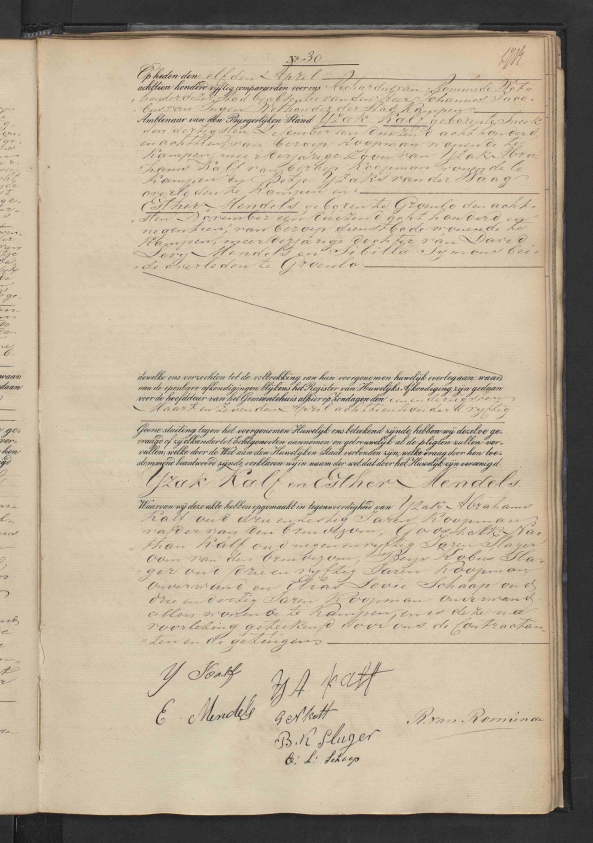 No 30
Op heden den elfden April
achttien honderd vijftig compareerden voor ons
Ambtenaar van den Burgerlijken Stand Yzak Kalf geboren te Sneek
den dertigsten December een duizend acht honderd
en achttien, van beroep Koopman wonende te
Kampen, meerderjarige Zoon van Yzak Abra-
hams Kalf van beroep Koopman wonende te
Kampen en Yzaks van der Haag
overleden te Kampen en
Esther Mendels geboren te Groenlo den acht-
sten November een duizend acht honderd en
negentien, van beroep dienstbode wonende te
Kampen, meerderjarige dochter van David
Levy Mendels en Sibilla Symons bei-
de overleden te Groenlo
dewelke ons verzochten tot de voltrekking van hun voorgenomen huwelijk overtegaan: waar-
van de openbare afkondigingen blijkens het Register van Huwelijks Afkondiging zijn gedaan
voor de hoofddeur van het Gemeentehuis alhier op Zondagen den een en dertigsten
Maart en zevenden April achttienhonderd vijftig
Geene stuiting tegen het voorgenomen Huwelijk ons bekend zijnde, hebben wij dezelve ge-
vraagd of zij elkander tot Echtgenooten aannemen en getrouwelijk al de pligten zullen ver-
vullen, welke door de Wet aan den Huwelijken Staat verbonden zijn, welke vraag door hen toe-
stemmend beantwoord zijnde, verklaren wij in naam der wet dat door het Huwelijk zijn vereenigd
Yzak Kalf en Esther Mendels
Waarvan wij deze akte hebben opgemaakt in tegenwoordigheid van Yzak Abrahams
Kalf oud drie en zestig Jaren Koopman
vader van den bruidegom, Godschalk Na-
than Kalf oud negen en vijftig Jaren Slager
oom van den bruidegom, Slu-
ger oud drie en vijftig Jaren Koopman
onverwand en Elias Levie Schaap oud
drie en dertig Jaren Koopman onverwand
allen wonende te Kampen, en is deze na
voorlezing geteekend door ons de Contractan-
ten en de getuigen
Y Kalf
YA Kalf
E Mendels
G N Kalf
R. van Romunde
B. K Sluger
E: L: Schaap